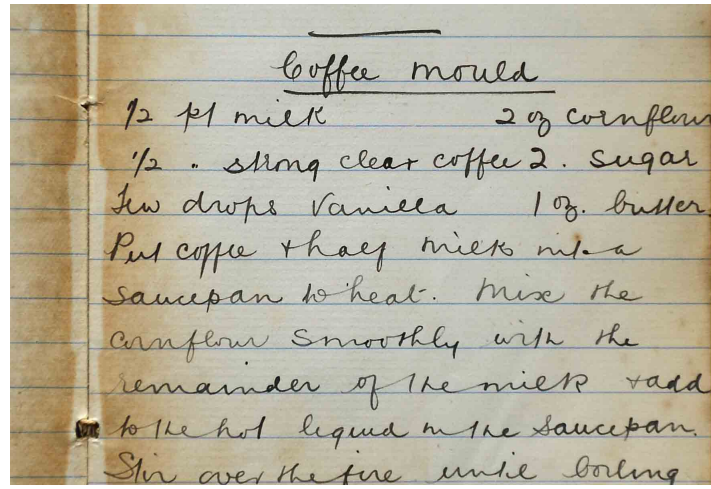 Coffee mould
1/2 pt milk 2 oz cornflour
1/2 . strong clear coffee 2 . sugar
Few drops Vanilla 1 oz. butter.
Put coffee + half milk into a
saucepan to heat. Mix the
cornflour smoothly with the
remainder of the milk + add
to the hot liquid in the saucepan.
Stir over the fire until boiling